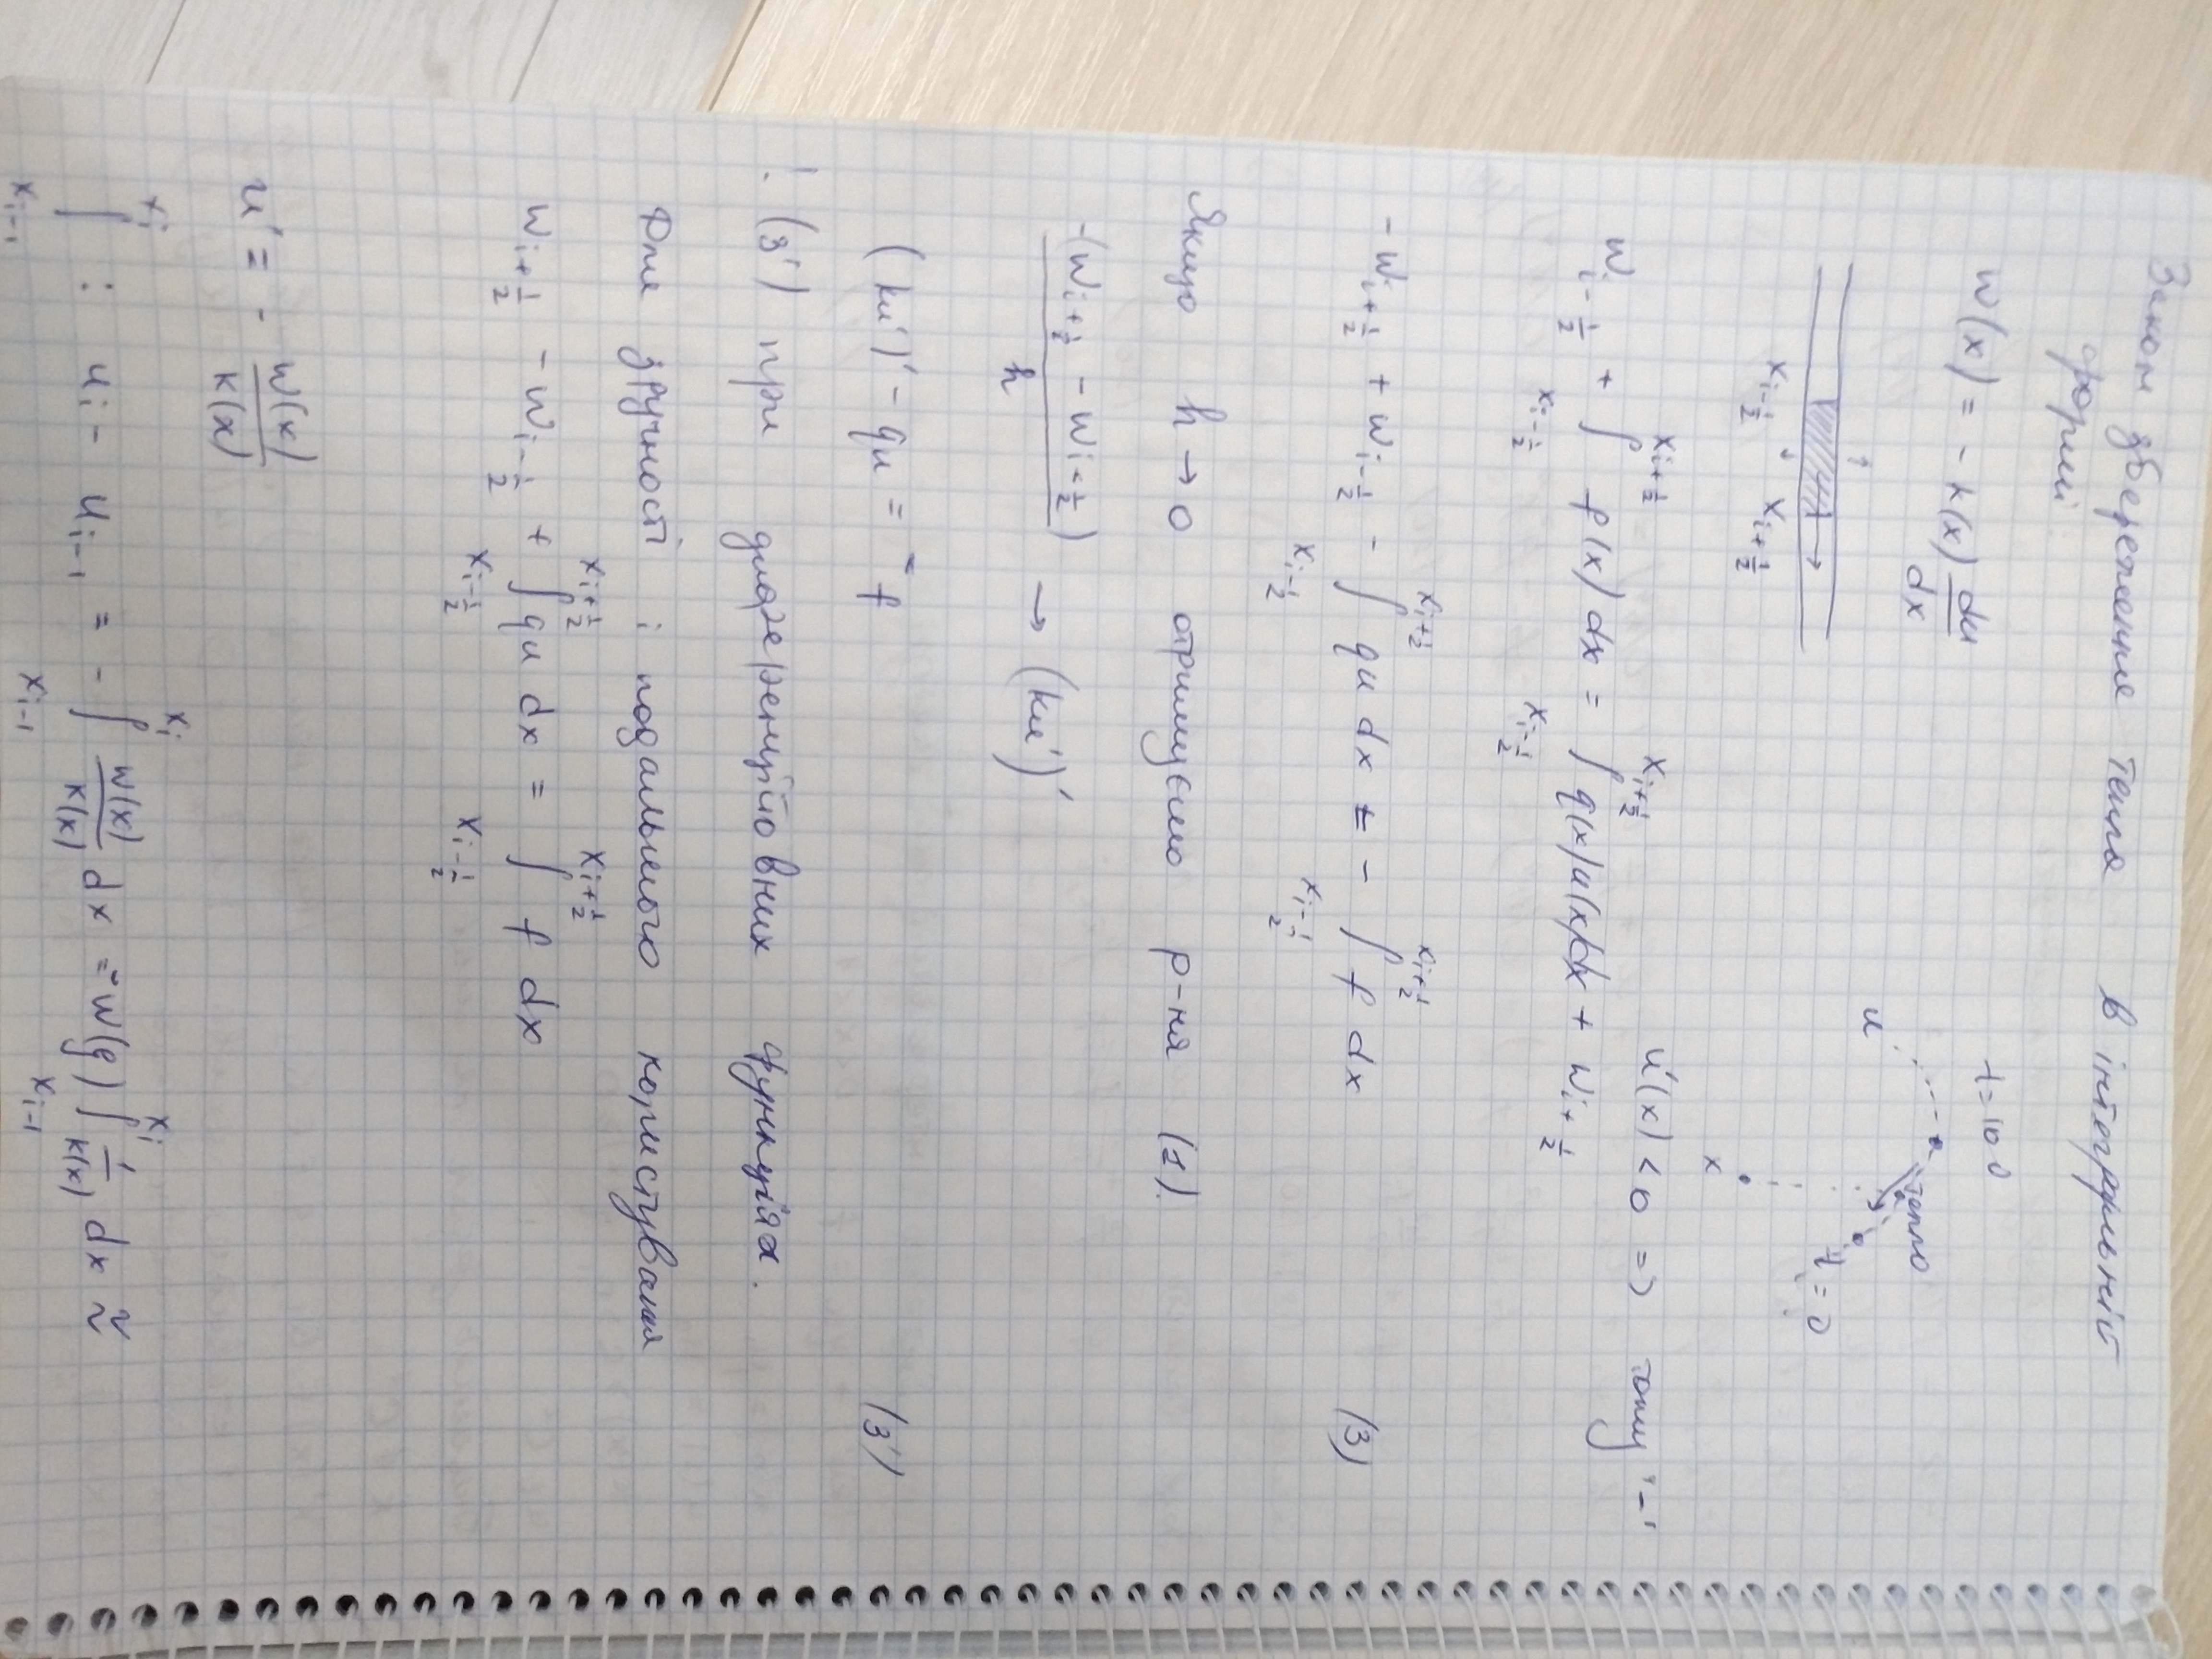 Закон збереження тепла в інтегральній
формі
w(x) = - k(x) du/dx
t=100
u
тепло
t=0
x
x_{i-1/2} x_{i+1/2}
u'(x) < 0 => тому "-"
w_{i-1/2} + ∫_{x_{i-1/2}}^{x_{i+1/2}} f(x) dx = ∫_{x_{i-1/2}}^{x_{i+1/2}} q(x)u(x)dx + w_{i+1/2}
- w_{i+1/2} + w_{i-1/2} - ∫_{x_{i-1/2}}^{x_{i+1/2}} qu dx = - ∫_{x_{i-1/2}}^{x_{i+1/2}} f dx (3)
Якщо h → 0 отримуємо р-ня (1).
-(w_{i+1/2} - w_{i-1/2})/h → (ku')'
(ku')' - qu = -f (3')
! (3') при диференційовних функціях.
Для зручності і подальшого користування
w_{i+1/2} - w_{i-1/2} + ∫_{x_{i-1/2}}^{x_{i+1/2}} qu dx = ∫_{x_{i-1/2}}^{x_{i+1/2}} f dx
u' = - w(x)/k(x)
∫_{x_{i-1}}^{x_i} : u_i - u_{i-1} = - ∫_{x_{i-1}}^{x_i} w(x)/k(x) dx = -w(ξ) ∫_{x_{i-1}}^{x_i} 1/k(x) dx ≈